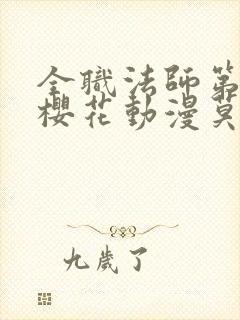 全職法師第
櫻花動漫莫
九歲了